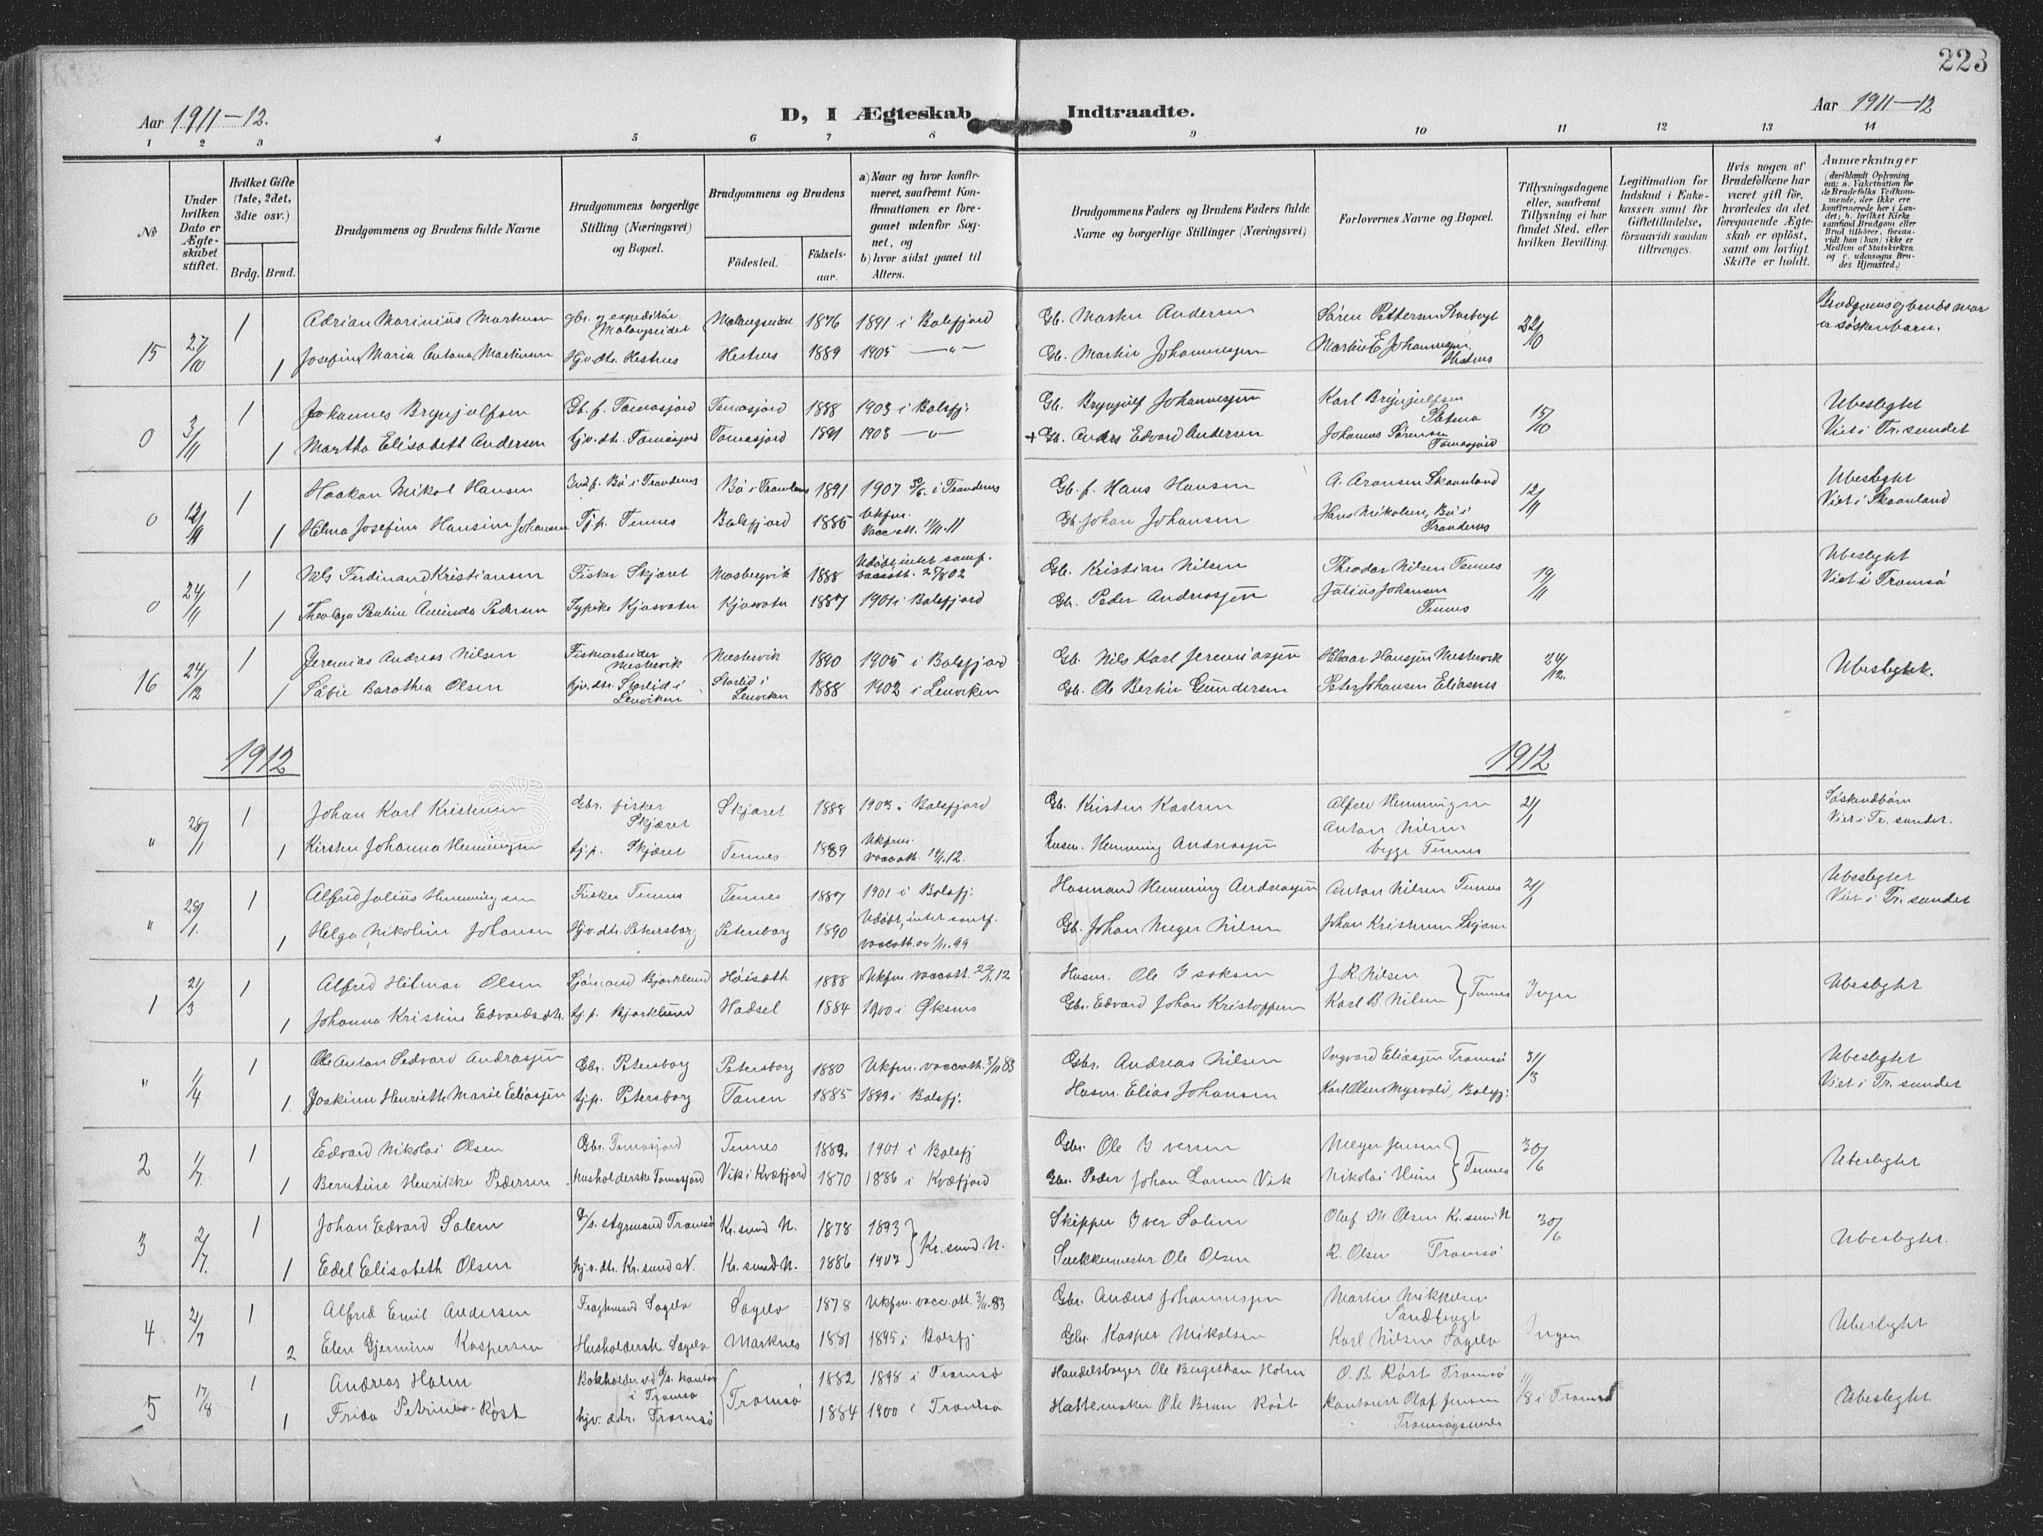 223
Aar 1911-12.
D, I Ægteskab Indtraadte.
Aar 1911-12
1 2 3 4 5 6 7 8 9 10 11 12 13 14
No
Under hvilken Dato er Ægteskabet stiftet.
Hvilket Gifte (1ste, 2det, 3die osv.)
Brdg. Brud.
Brudgommens og Brudens fulde Navne
Brudgommens borgerlige Stilling (Næringsvei) og Bopæl.
Brudgommens og Brudens
Födested. Födselsaar.
a) Naar og hvor konfirmeret, saafremt Konfirmationen er foregaaet udenfor Sognet, og
b) hvor sidst gaaet til Alters.
Brudgommens Faders og Brudens Faders fulde Navne og borgerlige Stillinger (Næringsvei)
Forlovernes Navne og Bopæl.
Tillysningsdagene eller, saafremt Tillysning ei har fundet Sted, efter hvilken Bevilling.
Legitimation for Indskud i Enkekassen samt for Giftetilladelse, forsaavidt saadan tiltrænges.
Hvis nogen af Brudefolkene har været gift för, hvorledes da det foregaaende Ægteskab er oplöst, samt om lovligt Skifte er holdt.
Anmærkninger
15 27/10 1 Adrian Marinius Martensen Gbr. og expeditör Malangseidet Malangseidet 1876 1891 i Balsfjord Gb. Marten Andersen Sören Pettersen 22/10
1 Josefine Maria Antona Martinsen Gjv. dtr. Hestnes Hestnes 1889 1905 —"— Gb. Martin Johannesen Martin E. Johannesen, Hestnes
0 3/11 1 Johannes Brynjulfsen Gb. f. Tomasjord Tomasjord 1888 1903 i Balsfj. Gb. Brynjulf Johannesen Karl Brynjulfsen 15/10 Ubeslegtet
1 Martha Elisabeth Andersen hjv. dtr. Tomasjord Tomasjord 1891 1903 —"— + Gb. Anders Edvard Andersen Johannes Sörensen Tomasjord Viet i Tr. sundet
0 12/11 1 Haakon Mikal Hansen Inds. f. Bö i Trondenes Bö i Trondenes 1891 1907 i Trondenes Gb. f. Hans Hansen A. Aronsen Skaanland 12/11 Ubeslegtet
1 Helma Josefine Hansine Johansen Tjp. Tennes Balsfjord 1885 Ukfm. Vacc. att. 11/11.11 Gb. Johan Johansen Hans Mikolsen, Bö i Trondenes Viet i Skaanland
0 24/11 1 Nils Ferdinand Kristiansen Fisker Skjæret Mosbergvik 1888 Udöbt, intet samf. vacc. att. Gb. Kristian Nilsen Theodor Nilsen Tennes 19/11 Ubeslegtet
1 Theolaga Pauline Aminda Pedersen Tjpike Kjosvatn Kjosvatn 1887 1901 i Balsfjord Gb. Peder Andreasjen Julius Johansen Tennes Viet i Tromsö
16 24/12 1 Jeremias Andreas Nilsen Fiskarbeider Mestervik Mestervik 1890 1905 i Balsfjord Gb. Nils Karl Jeremiasjen Hansjen Mestervik 24/12. Ubeslegtet.
1 Dorothea Olsen hjv. dtr. Storlid i Lenviken Storlid i Lenviken 1888 1902 i Lenviken Gb. Ole Bertin Gundersen Peter Johansen Eliasnes
1912 1912
" 28/1 1 Johan Karl Kristensen Gbr. fisker Skjæret Skjæret 1888 1903 i Balsfjord Gb. Kristen Karlsen Alfred Hemmingsen 21/1 Söskendbörn
1 Kirsten Johanna Hemmingsen tj.p. Skjæret Tennes 1889 Ukfm. vacc. att. 19/1.12. Husm. Hemming Andreasjen Anton Nilsen begge Tennes Viet i Tr. sundet.
" 28/1. 1 Alfred Julius Hemmingsen Fisker Tennes Tennes 1887 1901 i Balsfj. Husmand Hemming Andreasjen Anton Nilsen Tennes 21/1 Ubeslegtet
1 Helga Nikoline Johansen Hjv. dtr. Petersborg Petersborg 1890 Udöbt, intet samf. vacc. att. av 1/11.99 Gb. Johan Meyer Nilsen Johan Kristensen Skjæret Viet i Tr. sundet
1 21/3 1 Alfred Hilmar Olsen Sjömand Bjorklund Höisæth 1888 Ukfm. vacc. att. 22/2.12 Husm. Ole Isaksen J. R. Nilsen Ingen Ubeslegtet
1 Johanna Kristine Edvardsdtr. tj.p. Bjorklund Hadsel 1884 1900 i Øksnes Gbr. Edvard Johan Kristoffersen Karl B. Nilsen } Tennes
" 1/4 1 Ole Anton Sedvard Andreasjen Gbr. Petersborg Petersborg 1880 Ukfm. vacc. att. 3/11.83 Gbr. Andreas Nilsen Ingvard Eliasjen Tromsö 31/3 Ubeslegtet
1. Joakime Henriette Marie Eliasjen tj.p. Petersborg Tonen 1885 1899 i Balsfj. Husm. Elias Johansen Karl Olsen Myrvold, Balsfj. Viet i Tr. sundet
2 1/7 1 Edvard Nikolai Olsen Gbr. Tomasjord Tennes 1882 1901 i Balsfj Gbr. Ole Iversen Meyer Jensen 30/6 Ubeslegtet
1 Berntine Henrikke Pedersen Husholderske Tomasjord Vik i Kvæfjord 1870 1886 i Kvæfjord Gbr. Peder Johan Larsen Vik Nikolai } Tennes
3 2/7. 1 Johan Edvard Solem D/s. styrmand Tromsö Kr. sund N. 1878 1893 Skipper Iver Solem Olaf M. Olsen Kr. sund N 30/6 Ubeslegtet.
1 Edel Elisabeth Olsen hjv. dtr. Kr. sund N. Kr. sund N. 1886 1902 } Kr. sund N. Snekkermester Ole Olsen R. Olsen Tromsö
4 21/7 1 Alfred Emil Andersen Fragtmand Sagelv Sagelv 1878 Ukfm. vacc. att. 3/11.83 Gbr. Anders Johannesjen Martin Mikkelsen Sandbugt Ingen Ubeslegtet
2 Elen Gjermine Kaspersen Husholdersk Sagelv Marknes 1881 1895 i Balsfj. Gbr. Kasper Mikalsen Karl Nilsen Sagelv
5 17/8 1 Andreas Holm Bokholder ved D/s. kontor i Tromsö { Tromsö 1882 1898 i Tromsö Handelsborger Ole Bergethon Holm O. B. Röst Tromsö 11/8 i Tromsö Ubeslegtet
1 Frida Petrine Röst hjv. dtr. Tromsö 1884 1900 i Tromsö Hattemaker Ole Brun Röst Kontorist Olaf Jensen Tromsösundet